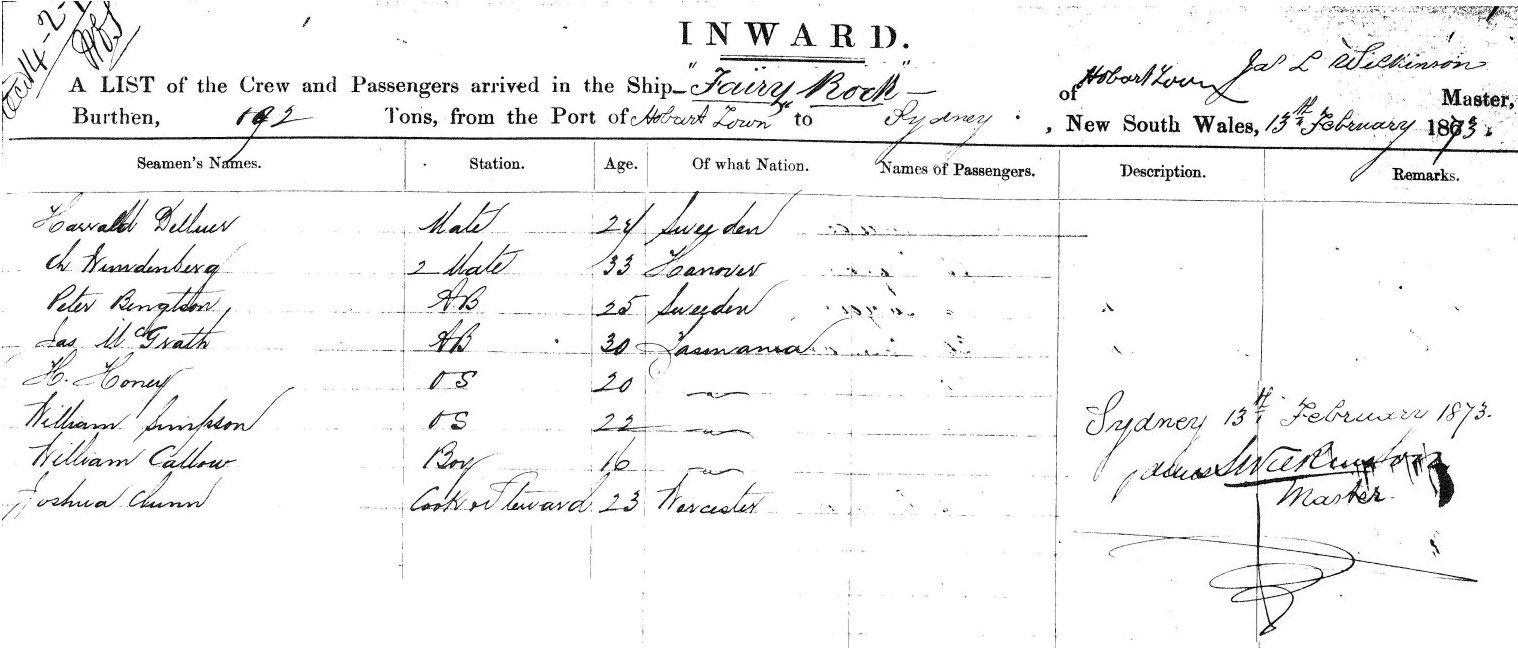 INWARD.
A LIST of the Crew and Passengers arrived in the Ship "Fairy Rock" of Hobart Town Jas L Wilkinson Master,
Burthen, 192 Tons, from the Port of Hobart Town to Sydney, New South Wales, 13th February 1873.
Seamen's Names. Station. Age. Of what Nation. Names of Passengers. Description. Remarks.
Harrald Mate 24 Sweeden
Ch 2 Mate 33 Hanover
Peter Bengtson AB 25 Sweeden
Jas McGrath AB 30 Tasmania
H. Honey OS 20 "
William Simpson OS 22 "
William Callow Boy 16 "
Joshua Cook & Steward 23 Worcester
Sydney 13th February 1873.
James L Wilkinson
Master